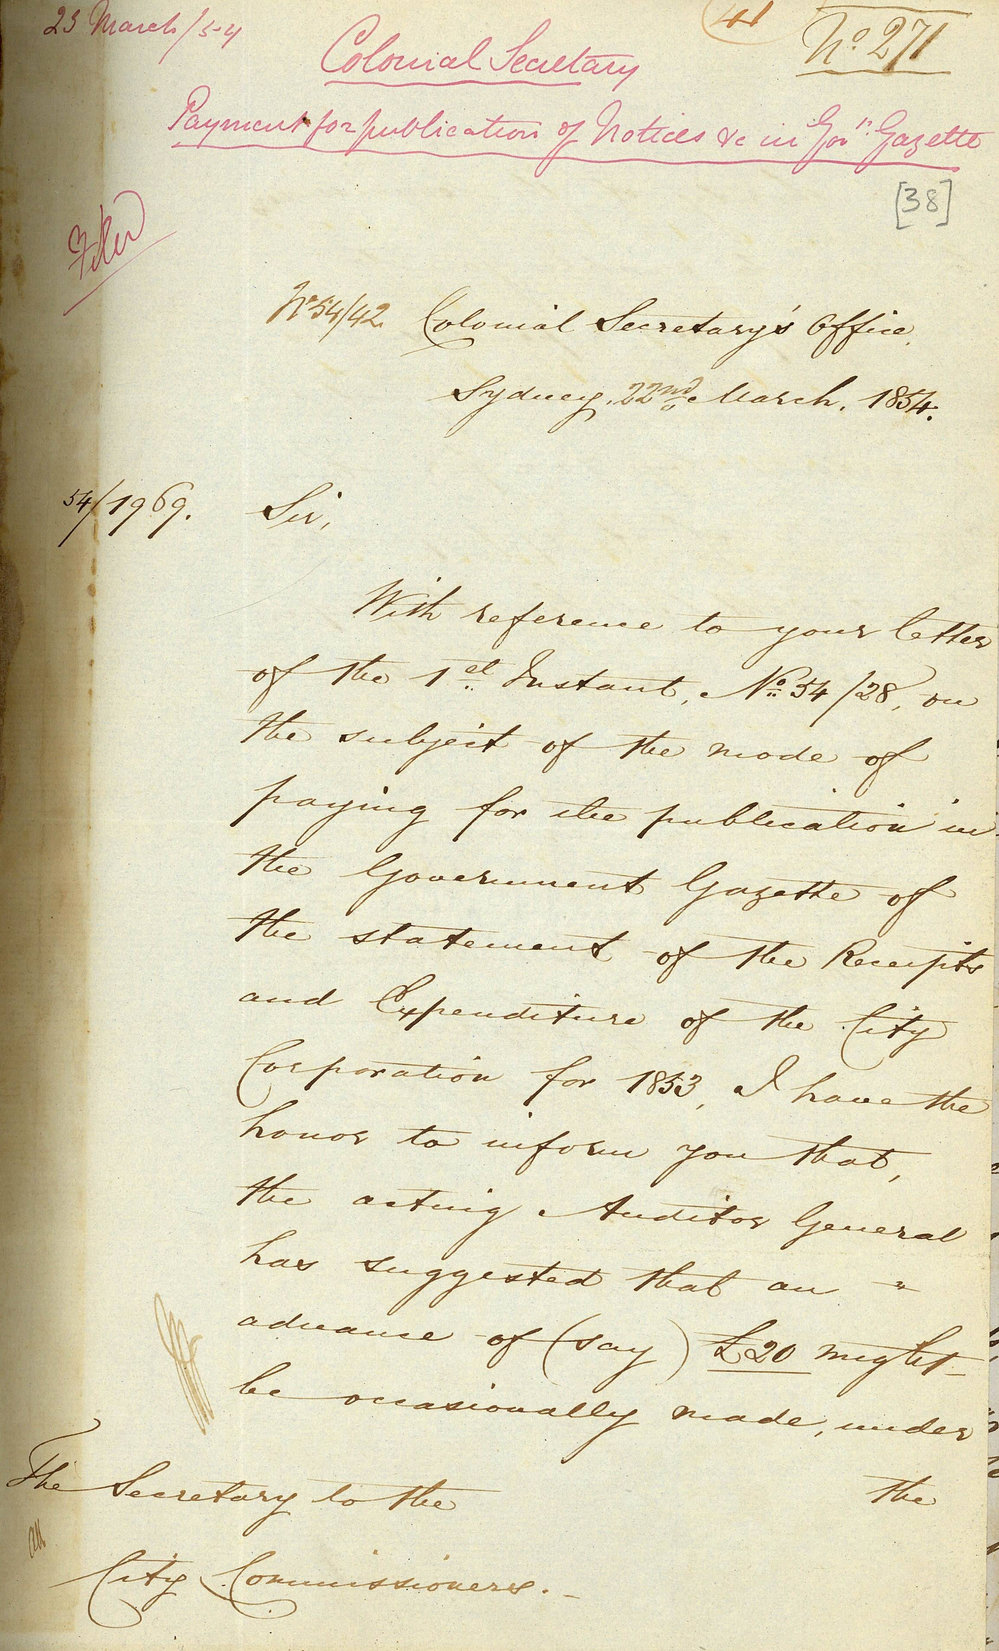 23 March/54
41
No. 271
Colonial Secretary
Payment for publication of Notices &c in Govt. Gazette
[38]
Filed
No 54/42. Colonial Secretary's Office,
Sydney, 22nd March. 1854.
54/1969. Sir,
With reference to your letter
of the 1st Instant, No. 54/28, on
the subject of the mode of
paying for the publication in
the Government Gazette of
the statement of the Receipts
and Expenditure of the City
Corporation for 1853, I have the
honor to inform you that,
the acting Auditor General
has suggested that an "
advance of (say) £20 might
be occasionally made, under
the
The Secretary to the
City Commissioners.